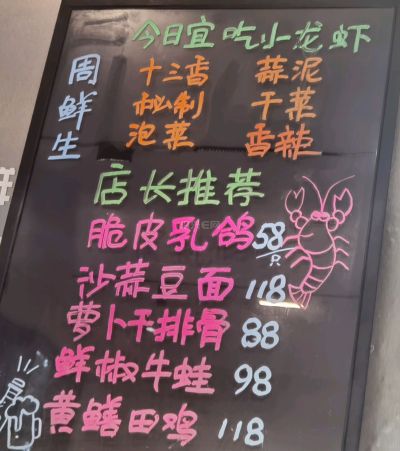 今日宜吃小龙虾
周鲜生
十三香 蒜泥
秘制 干菜
泡菜 香辣
店长推荐
脆皮乳鸽 58/只
沙蒜豆面 118
萝卜干排骨 88
鲜椒牛蛙 98
黄鳝田鸡 118
鲜